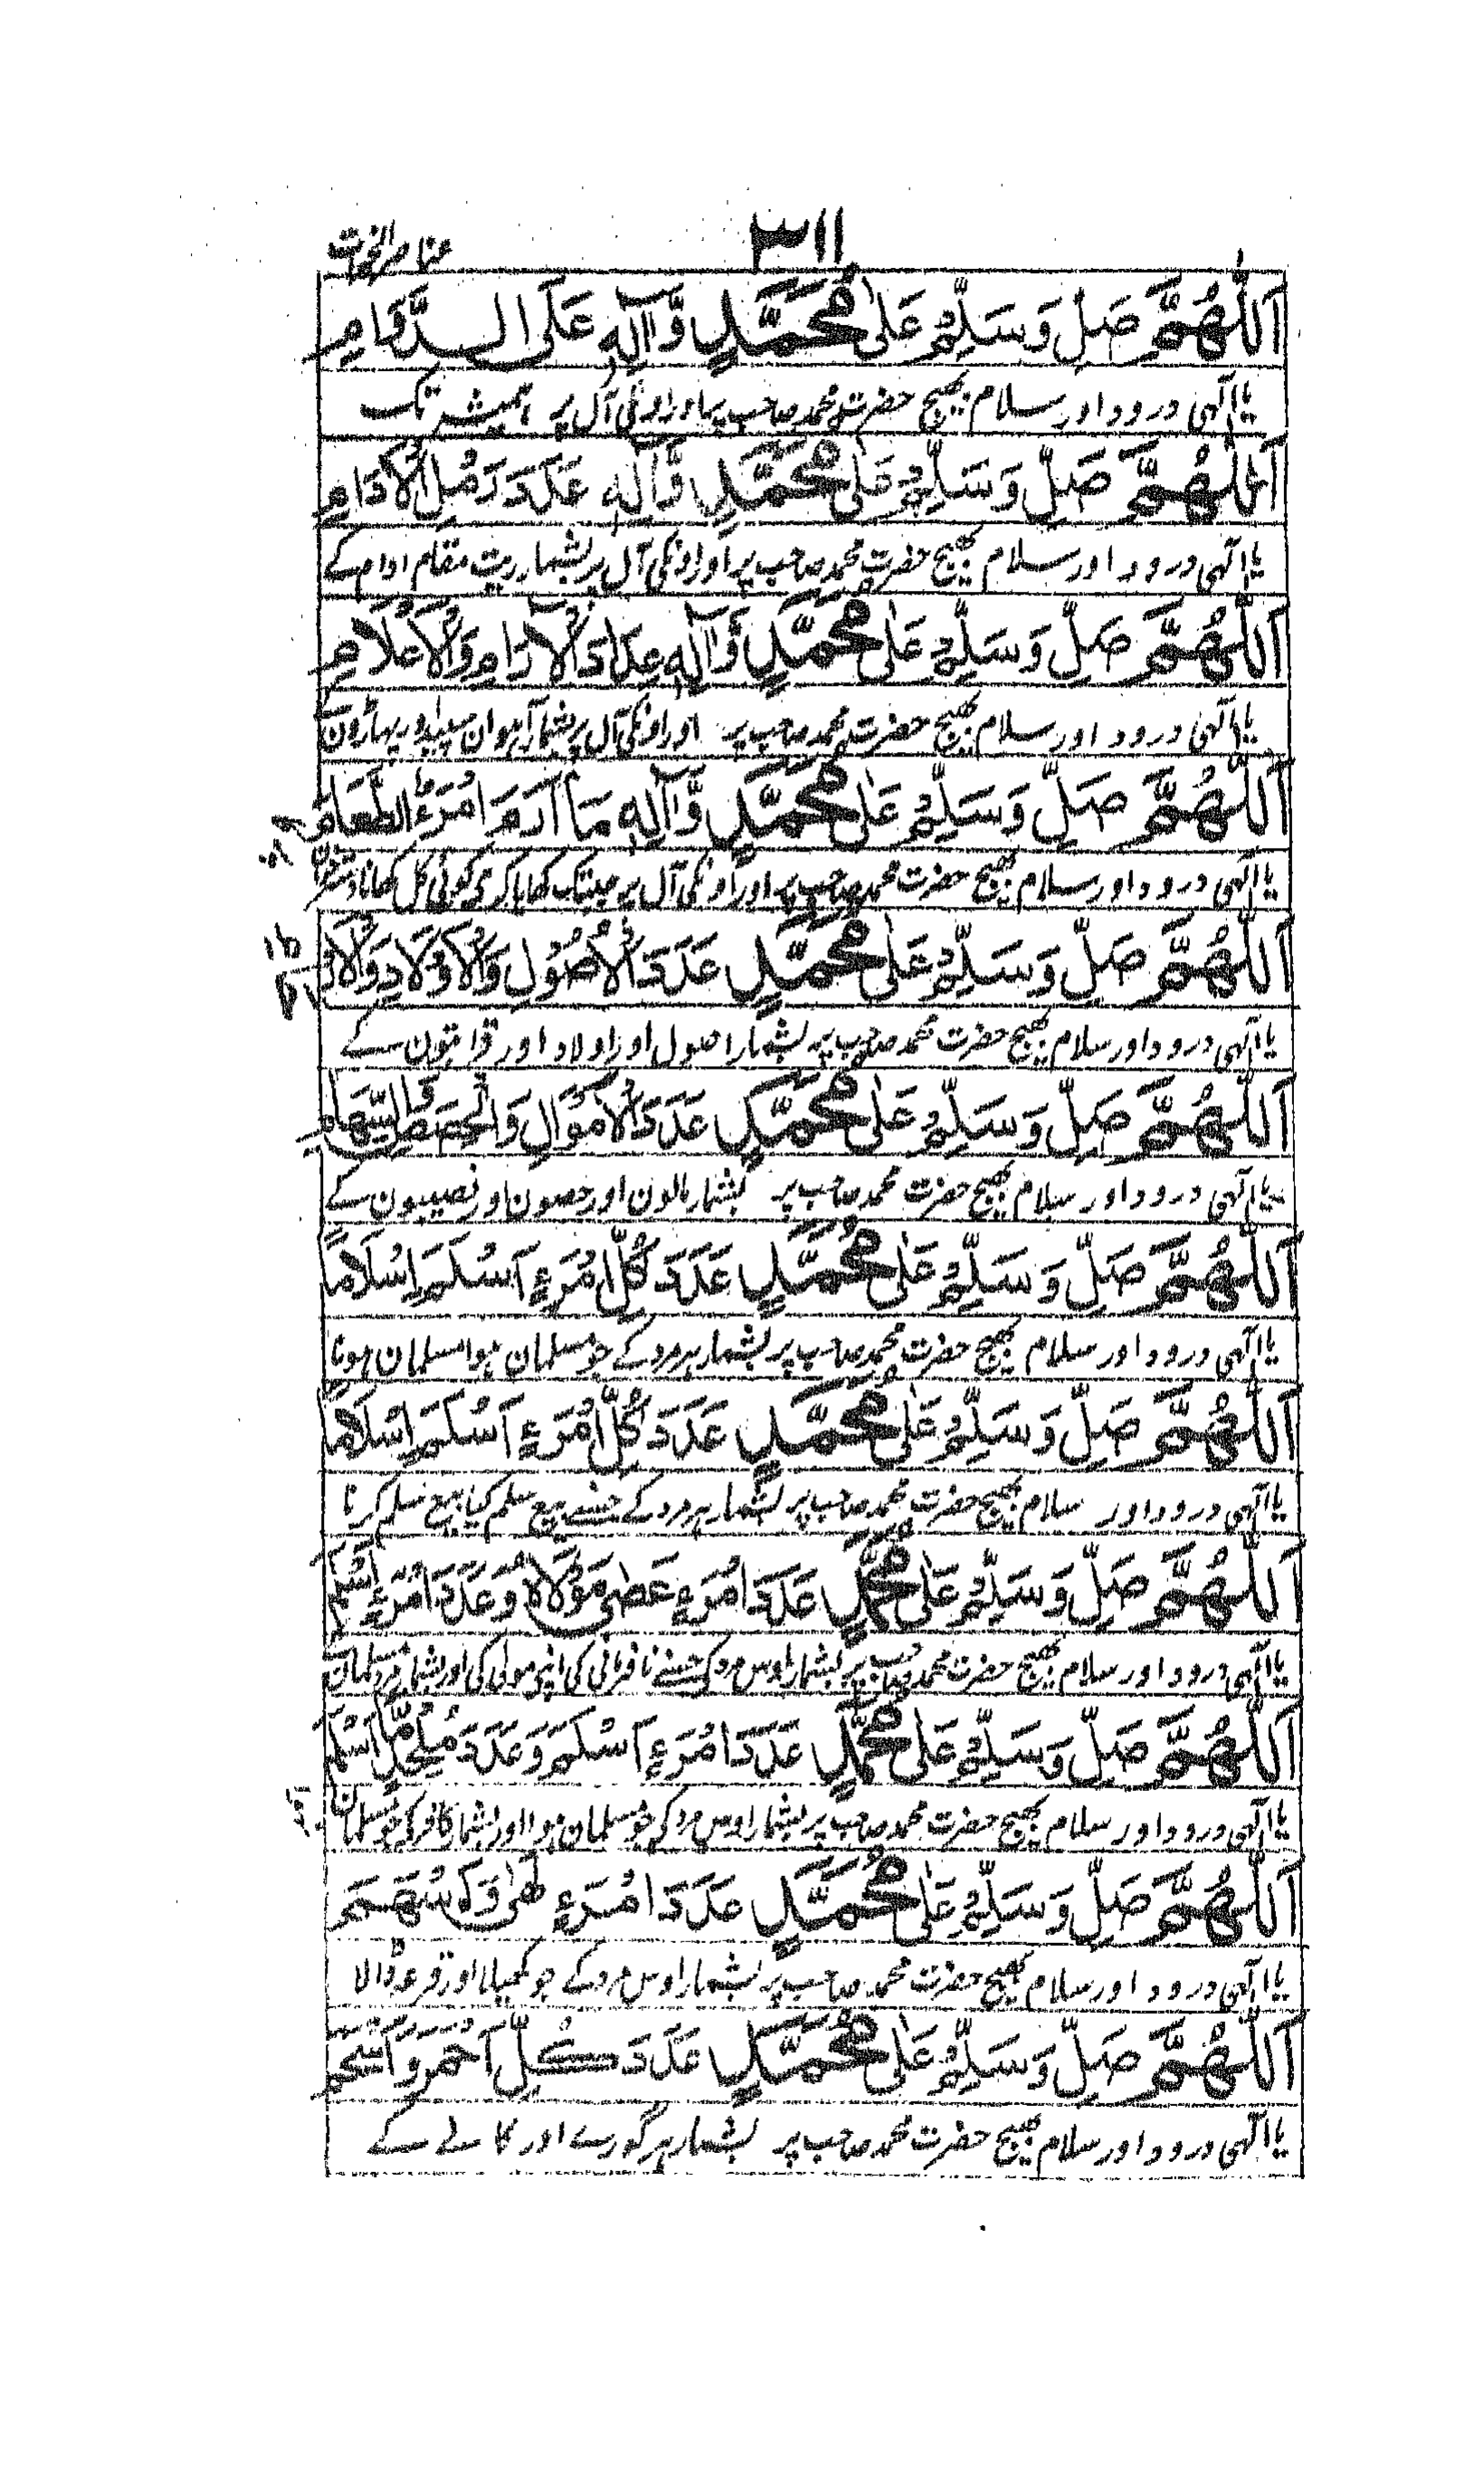 ۳۱۱
عناصر الخیرات
اَللّٰهُمَّ صَلِّ وَسَلِّمْ عَلٰی مُحَمَّدٍ وَّاٰلِهٖ عَلَی الدَّوَامِ
یا الٰہی درود اور سلام بھیج حضرت محمد صاحب پر اور اونکی آل پر ہمیشہ تک
اَللّٰهُمَّ صَلِّ وَسَلِّمْ عَلٰی مُحَمَّدٍ وَّاٰلِهٖ عَدَدَ رَمْلِ الْاَدَامِ
یا الٰہی درود اور سلام بھیج حضرت محمد صاحب پر اور اونکی آل پر بشمار ریت مقام ادام کے
اَللّٰهُمَّ صَلِّ وَسَلِّمْ عَلٰی مُحَمَّدٍ وَّاٰلِهٖ عِدَادَ الْاٰرَامِ وَالْاَعْلَامِ
یا الٰہی درود اور سلام بھیج حضرت محمد صاحب پر اور اونکی آل پر بشمار آہوان سپید اور پہاڑون
اَللّٰهُمَّ صَلِّ وَسَلِّمْ عَلٰی مُحَمَّدٍ وَّاٰلِهٖ مَا اَدَمَ امْرَءٌ الطَّعَامَ
یا الٰہی درود اور سلام بھیج حضرت محمد صاحب پر اور اونکی آل پر جبتک کھایا کری کوئی کل کھانا
اَللّٰهُمَّ صَلِّ وَسَلِّمْ عَلٰی مُحَمَّدٍ عَدَدَ الْاُصُوْلِ وَالْاَوْلَادِ
یا الٰہی درود اور سلام بھیج حضرت محمد صاحب پر بشمار اصول اور اولاد اور قرابتون کے
اَللّٰهُمَّ صَلِّ وَسَلِّمْ عَلٰی مُحَمَّدٍ عَدَدَ الْاَمْوَالِ وَالْحِصَصِ وَالسِّهَامِ
یا الٰہی درود اور سلام بھیج حضرت محمد صاحب پر بشمار مالون اور حصون اور نصیبون کے
اَللّٰهُمَّ صَلِّ وَسَلِّمْ عَلٰی مُحَمَّدٍ عَدَدَ كُلِّ امْرَءٍ اَسْلَمَ اِسْلَامًا
یا الٰہی درود اور سلام بھیج حضرت محمد صاحب پر بشمار ہر مرد کے جو مسلمان ہوا مسلمان ہونا
اَللّٰهُمَّ صَلِّ وَسَلِّمْ عَلٰی مُحَمَّدٍ عَدَدَ كُلِّ امْرَءٍ اَسْلَمَ اِسْلَامًا
یا الٰہی درود اور سلام بھیج حضرت محمد صاحب پر بشمار ہر مرد کے جسنے بیع سلم کیا بیع سلم کرنا
اَللّٰهُمَّ صَلِّ وَسَلِّمْ عَلٰی مُحَمَّدٍ عَدَدَ امْرَءٍ عَصٰی مَوْلَاهُ وَعَدَدَ امْرَءٍ اَسْلَمَ
یا الٰہی درود اور سلام بھیج حضرت محمد صاحب پر بشمار اوس مرد کی جسنے نافرمانی کی اپنی مولی کی اور بشمار
اَللّٰهُمَّ صَلِّ وَسَلِّمْ عَلٰی مُحَمَّدٍ عَدَدَ امْرَءٍ اَسْلَمَ وَعَدَدَ مُلْحِدٍ مَّا اَسْلَمَ
یا الٰہی درود اور سلام بھیج حضرت محمد صاحب پر بشمار اوس مرد کی جو مسلمان ہوا اور بشمار کافر کی جو مسلمان
اَللّٰهُمَّ صَلِّ وَسَلِّمْ عَلٰی مُحَمَّدٍ عَدَدَ امْرَءٍ لَهٰی
یا الٰہی درود اور سلام بھیج حضرت محمد صاحب پر بشمار اوس مرد کے جو کھیلا اور قرعہ ڈالا
اَللّٰهُمَّ صَلِّ وَسَلِّمْ عَلٰی مُحَمَّدٍ عَدَدَ كُلِّ اَحْمَرَ وَاَسْحَمَ
یا الٰہی درود اور سلام بھیج حضرت محمد صاحب پر بشمار ہر گورے اور کالے کے